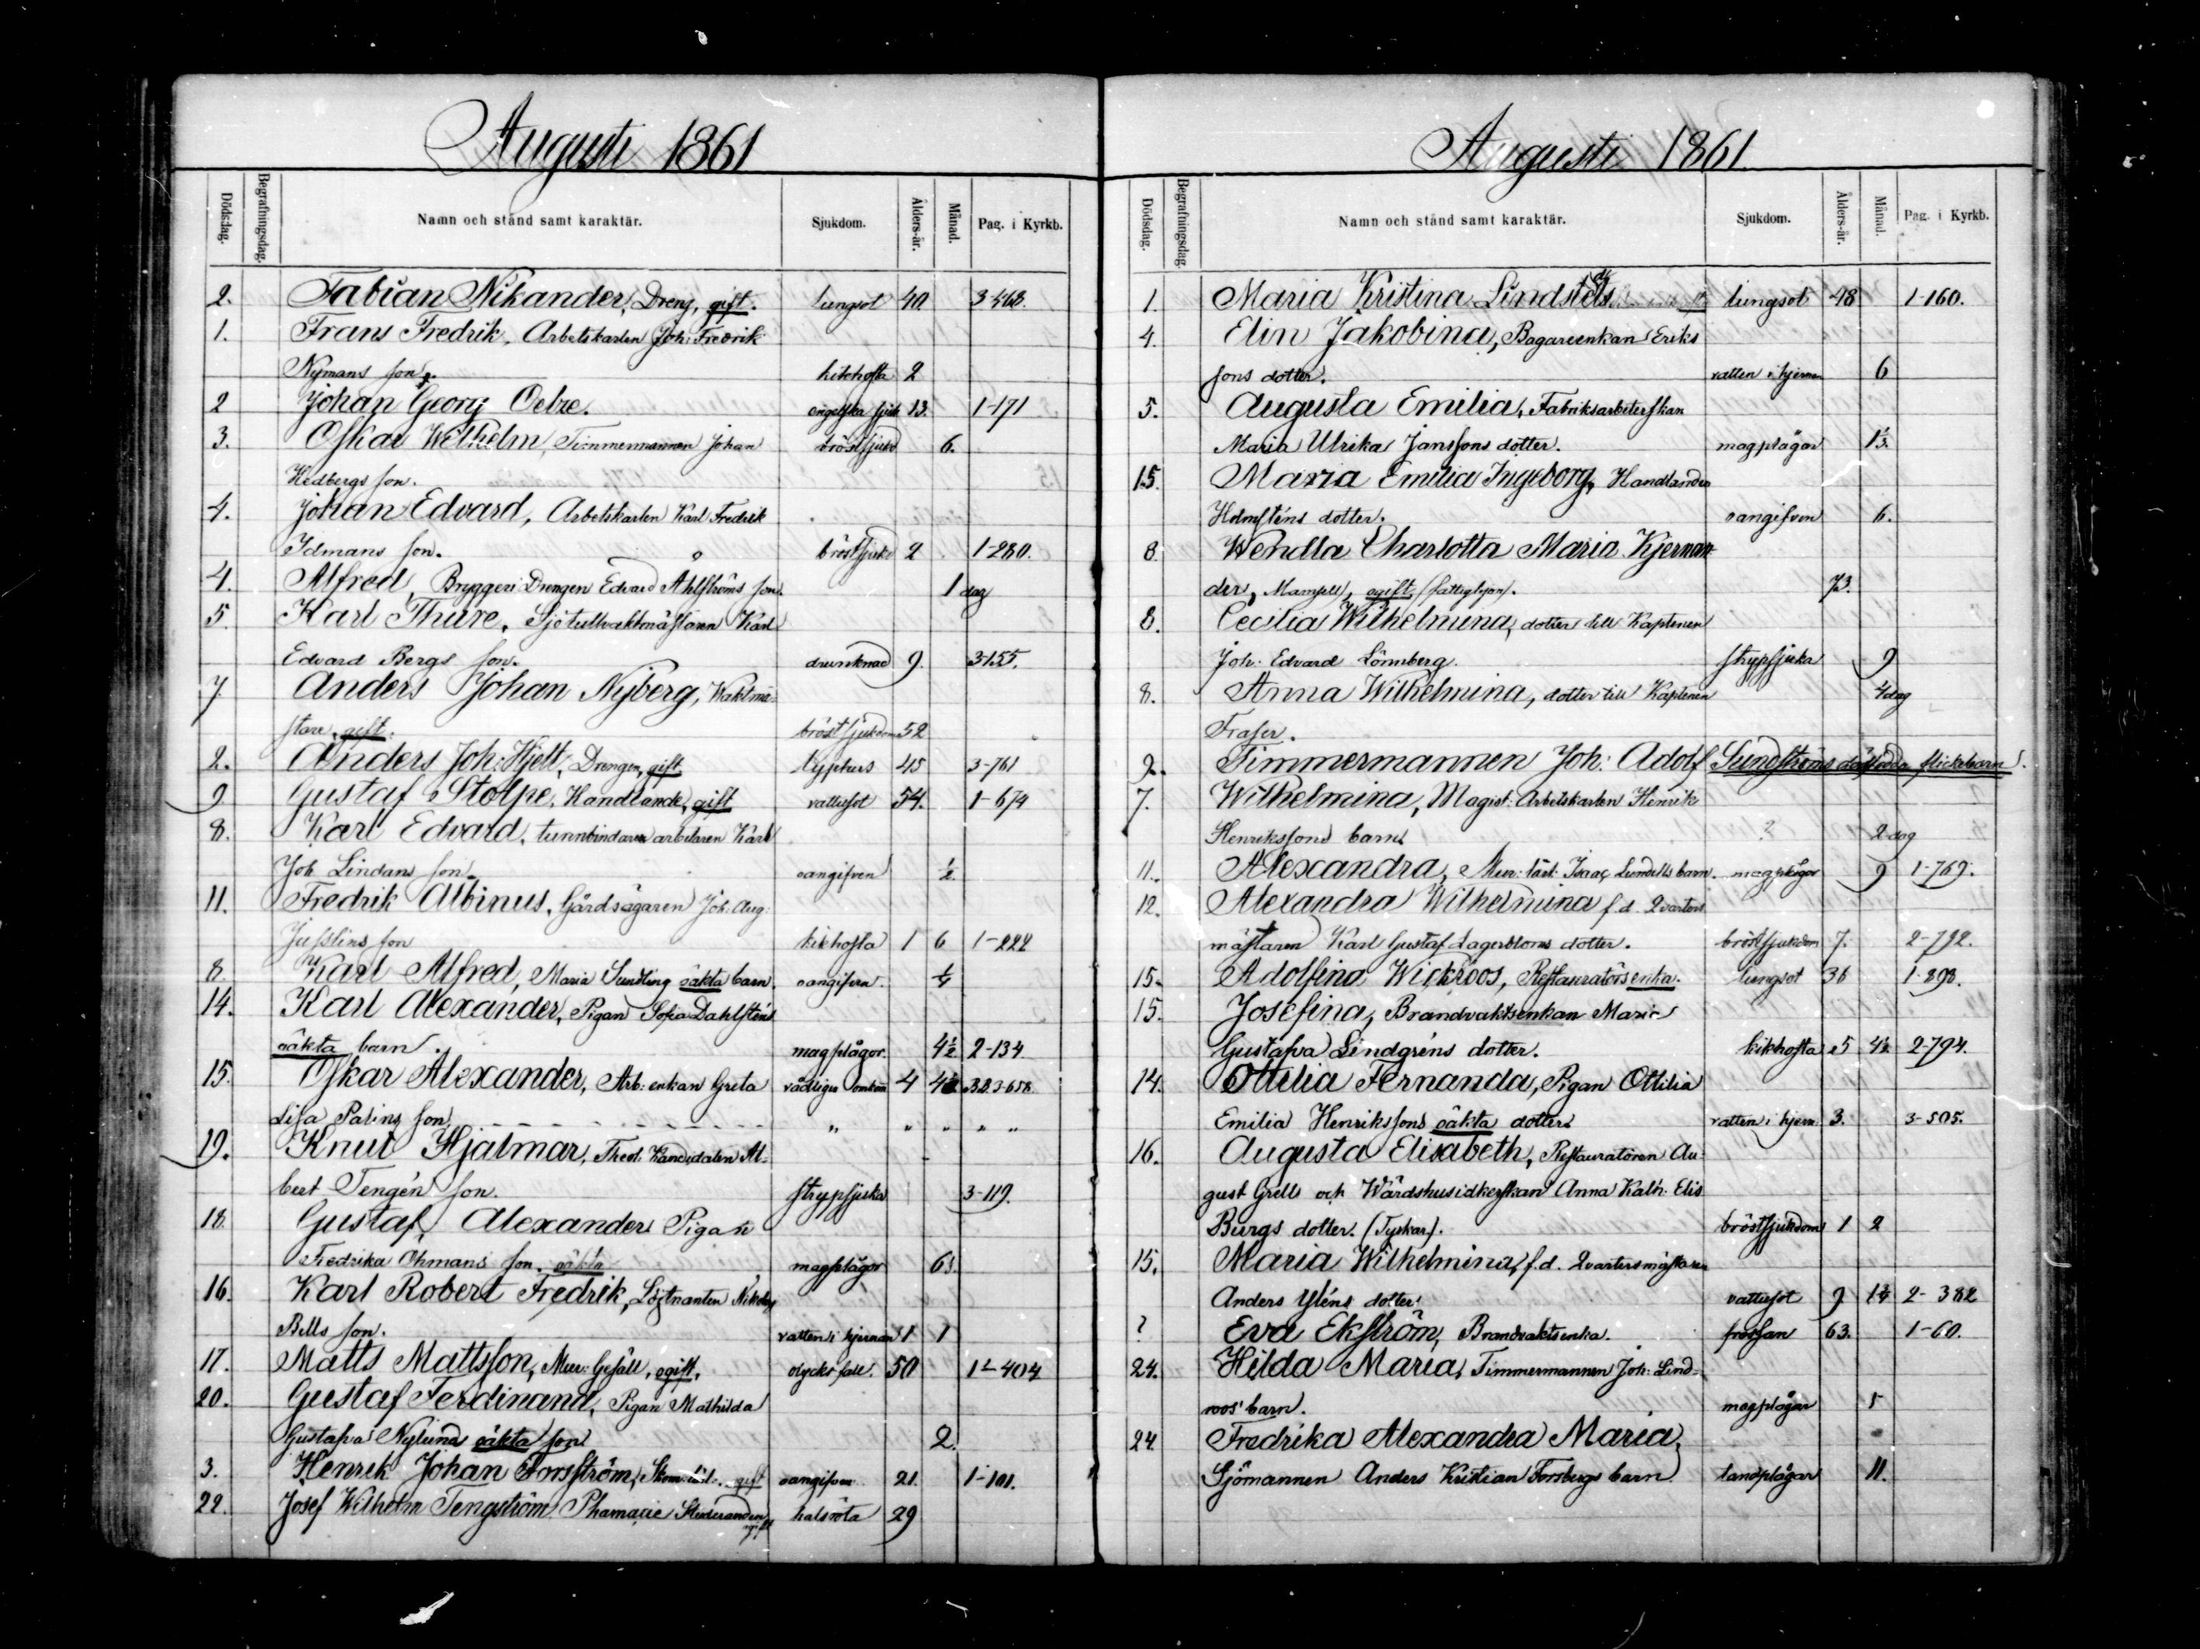 Augusti 1861
Dödsdag. Begrafningsdag. Namn och stånd samt karaktär. Sjukdom. Ålders-år. Månad. Pag. i Kyrkb.
2. Fabian Nikander, Dreng, gift. lungsot 40 3-468.
1. Frans Fredrik, Arbetskarlen Joh: Fredrik
Nymans son. kikhosta 2
2 Johan Georg Oebre. engelska sjuk 13. 1-171
3. Oskar Wilhelm, Timmermannen Johan bröstsjukd 6.
Hedbergs son.
4. Johan Edvard, Arbetskarlen Karl Fredrik
Idmans son. bröstsjukd 2 1-280.
4. Alfred, Bryggeri Drengen Edvard Åhlströms son. 1 dag
5. Karl Thure, Sjötullvaktmästaren Karl
Edvard Bergs son. drunknad 9. 3-155.
7 Anders Johan Nyberg, Waktmä-
stare, gift. bröstsjukdom 52
2. Anders Joh: Hjelt, Drengen, gift typhus 45 3-761
9 Gustaf Stolpe, Handlande, gift vattusot 54. 1-674
8. Karl Edvard, tunnbindare arbetaren Karl
Joh Lindans son. oangifven ½
11. Fredrik Albinus, Gårdsägaren Joh: Aug:
Jusslins son kikhosta 1 6 1-222
8. Karl Alfred, Maria Sundling oäkta barn. oangifven. ¼
14. Karl Alexander, Pigan Sofia Dahlsténs
oäkta barn. magplågor. 4½ 2-134
15. Oskar Alexander, Arb: enkan Greta vådligen omkom 4 4½ 323-658.
Lisa Palins son " " " " "
19. Knut Hjalmar, Theol: Kandidaten Al-
bert Tengén son. strypsjuka 3-119.
18. Gustaf Alexander Pigan
Fredrika Öhmans son. oäkta magplågor 6
16. Karl Robert Fredrik, Löjtnanten Nikolaj
Bells son. vatten i hjernan 1 1
17. Matts Mattsson, Mur: Gesäll, ogift, olycks fall. 50 1-404
20. Gustaf Ferdinand, Pigan Mathilda
Gustafva Nylund oäkta son 2.
3. Henrik Johan Forsström, gift oangifven. 21. 1-101.
22. Josef Wilhelm Tengström Pharmacie Studeranden ogift halsröta 29
Augusti 1861.
Dödsdag. Begrafningsdag. Namn och stånd samt karaktär. Sjukdom. Ålders-år. Månad. Pag. i Kyrkb.
1. Maria Kristina Lindstedt lungsot 48 1-160.
4. Elin Jakobina, Bagareenkan Eriks
sons dotter. vatten i hjernan 6
5. Augusta Emilia, Fabriksarbeterskan
Maria Ulrika Janssons dotter. magplågor 1½
15. Maria Emilia Ingeborg, Handlanden
Holmsténs dotter. oangifven 6.
8. Wendla Charlotta Maria Kjernan-
der, Mamsell, ogift (fattighjon). 73.
8. Cecilia Wilhelmina, dotter till Kaptenen
Joh: Edvard Lönnberg. strypsjuka 9
8. Anna Wilhelmina, dotter till Kaptenen 4 dag
Fraser.
9. Timmermannen Joh: Adolf Sundströms dödfödda flickebarn.
7. Wilhelmina, Magist: Arbetskarlen Henrik
Henrikssons barn. ? 2 dag
11. Alexandra, Mur: lärl: Isaac Lundells barn. magplågor 9 1-769.
12. Alexandra Wilhelmina f.d. Qvarters
mästaren Karl Gustaf Lagerbloms dotter. bröstsjukdom 7. 2-792.
15. Adolfina Wickroos, Restauratörsenka. lungsot 36 1-898.
15. Josefina, Brandvaktsenkan Maria
Gustafva Lindgréns dotter. kikhosta 5 4½ 2-794.
14. Ottilia Fernanda, Pigan Ottilia
Emilia Henrikssons oäkta dotter. vatten i hjern: 3. 3-505.
16. Augusta Elisabeth, Restauratören Au-
gust Grells och Wärdshusidkerskan Anna Kath: Elis
Burgs dotter. (Tyskar). bröstsjukdom 1 2
15. Maria Wilhelmina, f.d. Qvartersmästaren
Anders Yléns dotter. vattusot 9 1½ 2-382
? Eva Ekström, Brandvaktsenka. frossan 63. 1-60.
24. Hilda Maria, Timmermannen Joh: Lind-
roos' barn. magplågor 5
24. Fredrika Alexandra Maria,
Sjömannen Anders Kristian Forsbergs barn landplågor 11.